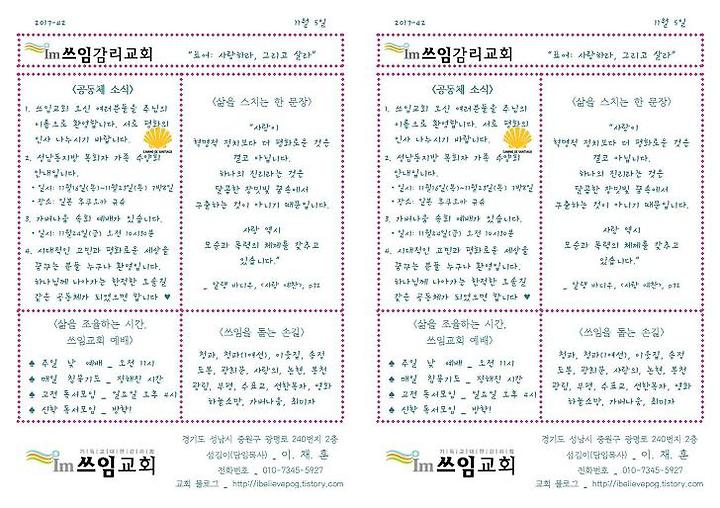 2017-42
11월 5일
Im 쓰임감리교회
"표어: 사랑하라, 그리고 살라"
<공동체 소식>
1. 쓰임교회 오신 여러분들을 주님의
이름으로 환영합니다. 서로 평화의
인사 나누시기 바랍니다.
CAMINO DE SANTIAGO
2. 성남동지방 목회자 가족 수양회
안내입니다.
• 장소: 일본 후쿠오카 큐슈
3. 가버나움 속회 예배가 있습니다.
• 일시: 11월24일(금) 오전 10시30분
4. 시대적인 고민과 평화로운 세상을
꿈꾸는 분들 누구나 환영입니다.
하나님께 나아가는 한적한 오솔길
같은 공동체가 되었으면 합니다 ♥
<삶을 스치는 한 문장>
"사랑이
혁명적 정치보다 더 평화로운 것은
결코 아닙니다.
하나의 진리라는 것은
달콤한 장밋빛 꿈속에서
구축하는 것이 아니기 때문입니다.
사랑 역시
모순과 폭력의 체제를 갖추고
있습니다."
_ 알랭 바디우, <사랑 예찬>,
<삶을 조율하는 시간,
쓰임교회 예배>
♣ 주일 낮 예배 _ 오전 11시
♣ 매일 침묵기도 _ 정해진 시간
♣ 고전 독서모임 _ 일요일 오후 4시
♣ 신학 독서모임 _ 방학!
<쓰임을 돕는 손길>
청파, 청파(1여선), 이웃길, 송전
도봉, 광희문, 사랑의, 논현, 봉천
광림, 부평, 수표교, 선한목자, 영화
하늘소망, 가버나움, 최미자
기독교대한감리회
Im 쓰임교회
경기도 성남시 중원구 광명로 240번지 2층
섬김이(담임목사) _ 이 . 재 . 훈
전화번호 _ 010-7345-5927
교회 블로그 _ http://ibelievepog.tistory.com
2017-42
11월 5일
Im 쓰임감리교회
"표어: 사랑하라, 그리고 살라"
<공동체 소식>
1. 쓰임교회 오신 여러분들을 주님의
이름으로 환영합니다. 서로 평화의
인사 나누시기 바랍니다.
CAMINO DE SANTIAGO
2. 성남동지방 목회자 가족 수양회
안내입니다.
• 장소: 일본 후쿠오카 큐슈
3. 가버나움 속회 예배가 있습니다.
• 일시: 11월24일(금) 오전 10시30분
4. 시대적인 고민과 평화로운 세상을
꿈꾸는 분들 누구나 환영입니다.
하나님께 나아가는 한적한 오솔길
같은 공동체가 되었으면 합니다 ♥
<삶을 스치는 한 문장>
"사랑이
혁명적 정치보다 더 평화로운 것은
결코 아닙니다.
하나의 진리라는 것은
달콤한 장밋빛 꿈속에서
구축하는 것이 아니기 때문입니다.
사랑 역시
모순과 폭력의 체제를 갖추고
있습니다."
_ 알랭 바디우, <사랑 예찬>,
<삶을 조율하는 시간,
쓰임교회 예배>
♣ 주일 낮 예배 _ 오전 11시
♣ 매일 침묵기도 _ 정해진 시간
♣ 고전 독서모임 _ 일요일 오후 4시
♣ 신학 독서모임 _ 방학!
<쓰임을 돕는 손길>
청파, 청파(1여선), 이웃길, 송전
도봉, 광희문, 사랑의, 논현, 봉천
광림, 부평, 수표교, 선한목자, 영화
하늘소망, 가버나움, 최미자
기독교대한감리회
Im 쓰임교회
경기도 성남시 중원구 광명로 240번지 2층
섬김이(담임목사) _ 이 . 재 . 훈
전화번호 _ 010-7345-5927
교회 블로그 _ http://ibelievepog.tistory.com